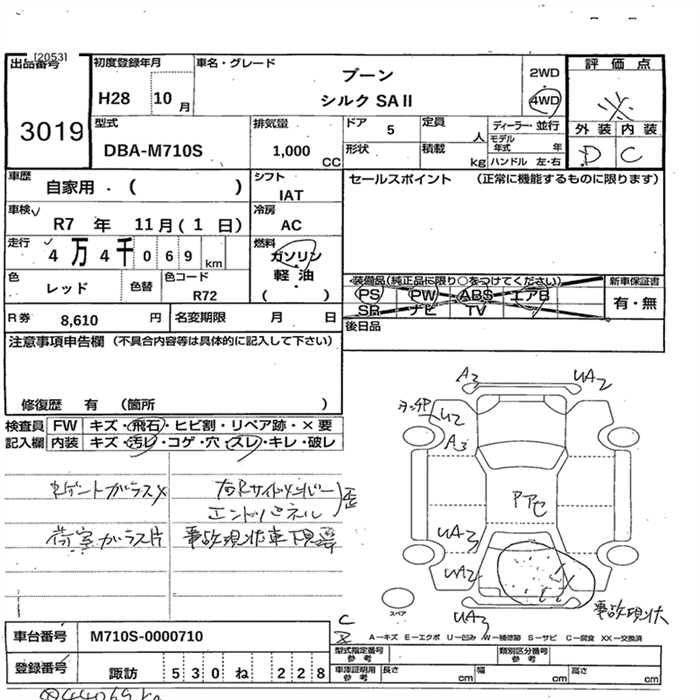 [2053]
出品番号
3019
初度登録年月
H28 10月
車名・グレード
ブーン
シルク SAⅡ
2WD
4WD
評価点
外装 内装
D C
型式
DBA-M710S
排気量
1,000 CC
ドア 5
定員 人
形状
積載 kg
ディーラー・並行
モデル年式 年
ハンドル 左・右
車歴
自家用・( )
シフト
IAT
セールスポイント (正常に機能するものに限ります)
車検
R7 年 11月(1 日)
冷房
AC
走行
4万4千069km
燃料
ガソリン
・
軽油
( )
色
レッド
色替
色コード
R72
装備品(純正品に限り○をつけてください)
PS PW ABS エアB
SR ナビ TV
新車保証書
有・無
R券 8,610 円
名変期限 月 日
後日品
注意事項申告欄 (不具合内容等は具体的に記入して下さい)
修復歴 有 (箇所 )
検査員記入欄
FW キズ・飛石・ヒビ割・リペア跡・×要
内装 キズ・汚レ・コゲ・穴・スレ・キレ・破レ
荷室ガラス片
エンドパネル
事故現状車下廻
A3
UA2
U2
A3
UA3
UA2
UA3
事故現状
スペア
A−キズ E−エクボ U−凹み W−補修跡 S−サビ C−腐食 XX−交換済
車台番号
M710S-0000710
型式指定番号 参考
類別区分番号 参考
登録番号
諏訪 530 ね 228
車庫証明用 参考
長さ cm
幅 cm
高さ cm